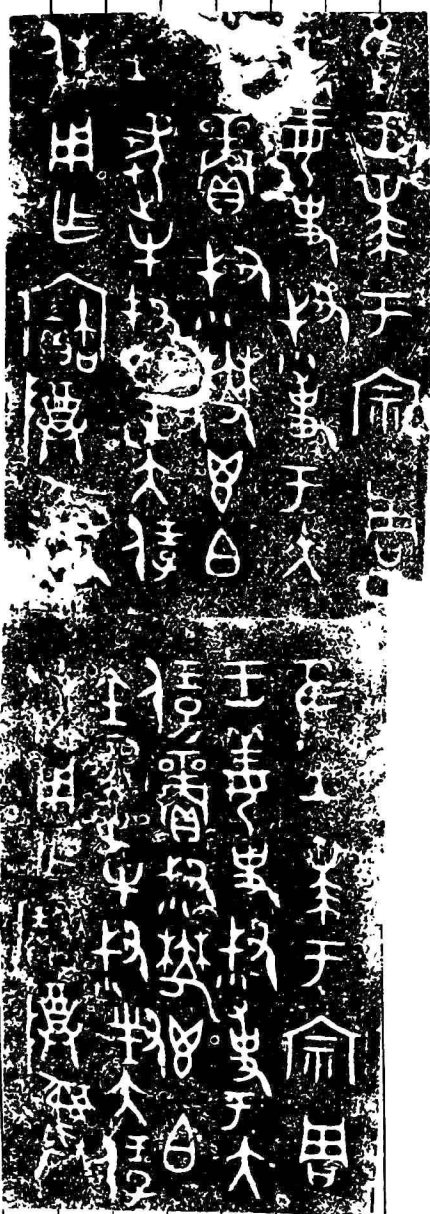 隹王𠦪于宗周
王姜史叔事于大
保賞叔鬱鬯白
金芻牛叔對大保
休用乍寶尊彝
隹王𠦪于宗周
王姜史叔事于大
保賞叔鬱鬯白
金芻牛叔對大保
休用乍寶尊彝